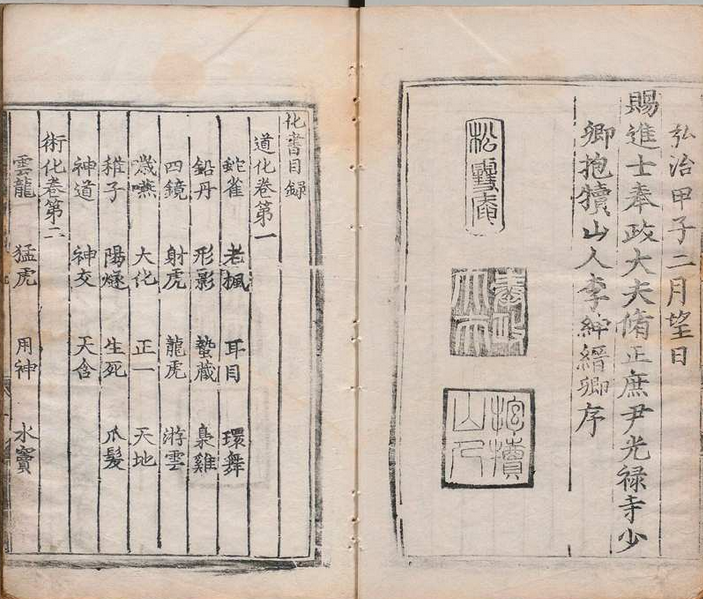 弘治甲子二月望日
賜進士奉政大夫脩正庶尹光禄寺少
卿抱犢山人李紳縉卿序
松雪庵
抱犢山人
化書目録
道化卷第一
蛇雀 老楓 耳目 環舞
鉛丹 形影 蟄藏 梟雞
四鏡 射虎 龍虎 游雲
大化 正一 天地
稚子 陽燧 生死 爪髮
神道 神交 天含
術化卷第二
雲龍 猛虎 用神 水竇